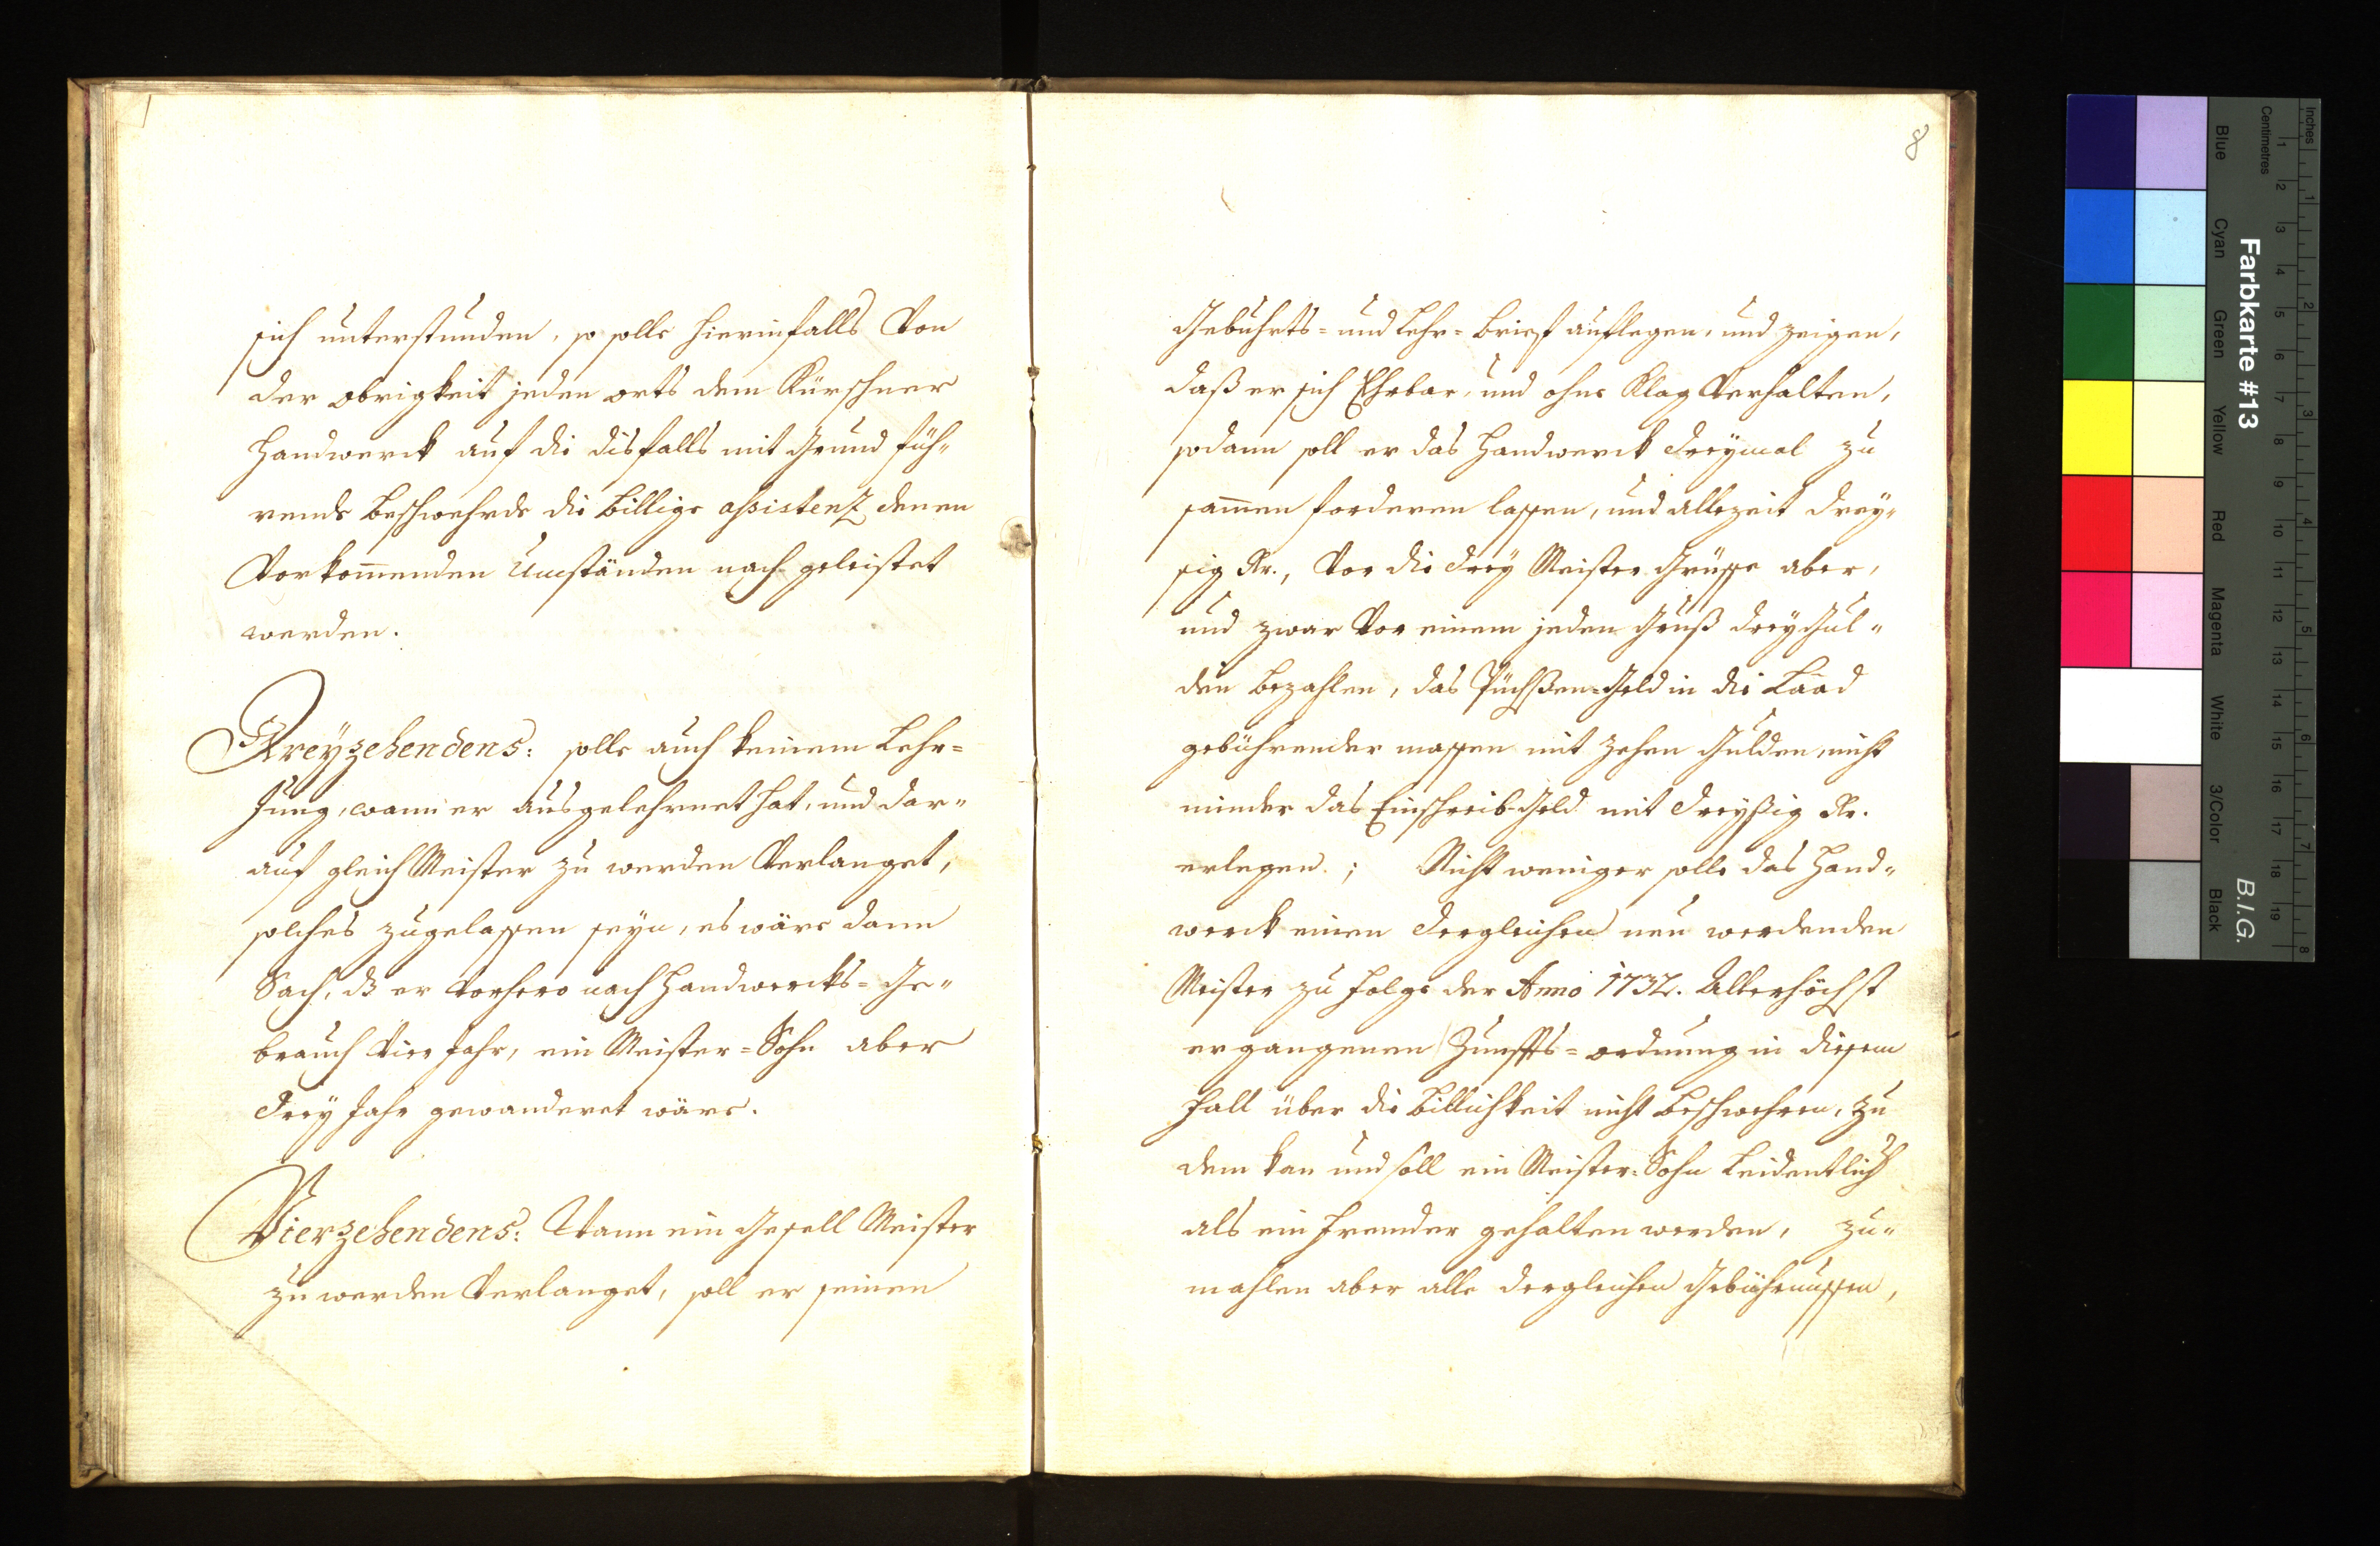 sich unterstunden, so solle hierinfalls Von
der obrigkeit jeden orts dem Kürschner
Handwerck auf die disfalls mit Grund füh-
rende Beschwehrde die billige assistenz denen
Vorkom̅enden Umständen nach geleistet
werden.
Dreyzehendens: solle auch keinem Lehr=
Jung, wann er ausgelehrnet hat, und dar-
auf gleich Meister zu werden Verlanget,
solches zugelassen seyn, es wäre dann
Sach, dß er Vorhero nach Handwercks=Ge-
brauch Vier Jahr, ein Meister=Sohn aber
drey Jahr gewanderet wäre.
Vierzehendens: Wann ein Gesell Meister
zu werden Verlanget, soll er seinen
8
Gebuhrts= und Lehr=Brief auflegen, und zeigen,
daß er sich Ehrbar, und ohne Klag Verhalten,
sodann soll er das Handwerck dreymal zu
sam̅en forderen lassen, und allezeit drey-
sig Kr., Vor die drey Meister Grüsse aber,
und zwar Vor einem jeden Gruß drey Gul-
den bezahlen, das Püchßen=Geld in die Laad
gebührender massen mit zehen Gulden, nicht
minder das Einschreib-Geld mit dreyßig Kr.
erlegen.; Nicht weniger solle das Hand-
werck einen dergleichen neu werdenden
Meister zu folge der Anno 1732. Allerhöchst
ergangenen Zunffts=ordnung in diesem
fall über die Billichkeit nicht beschwehren, zu
dem kan und soll ein Meister=Sohn Leidentlich
als ein fremder gehalten werden, zu-
mahlen aber alle dergleichen Gebührnussen,
Inches
Centimetres
1 2 3 4 5 6 7 8 9 10 11 12 13 14 15 16 17 18 19
1 2 3 4 5 6 7 8
Farbkarte #13
B.I.G.
Blue Cyan Green Yellow Red Magenta White 3/Color Black